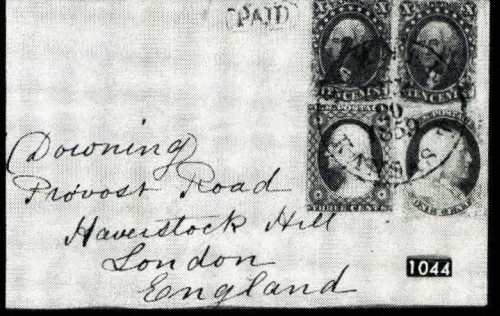 PAID
X X X X
TEN CENTS TEN CENTS
20
1859
KANSAS
THREE CENTS ONE CENT
(Downing)
Provost Road
Haverstock Hill
London
England
1044